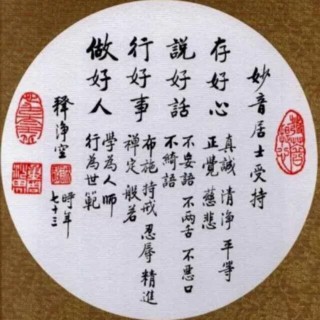 妙音居士受持
存好心
真誠 清淨 平等
正覺 慈悲
說好話
不妄語 不兩舌 不惡口
不綺語
行好事
布施 持戒 忍辱 精進
禪定 般若
做好人
學為人師
行為世範
釋淨空
時年
七十三